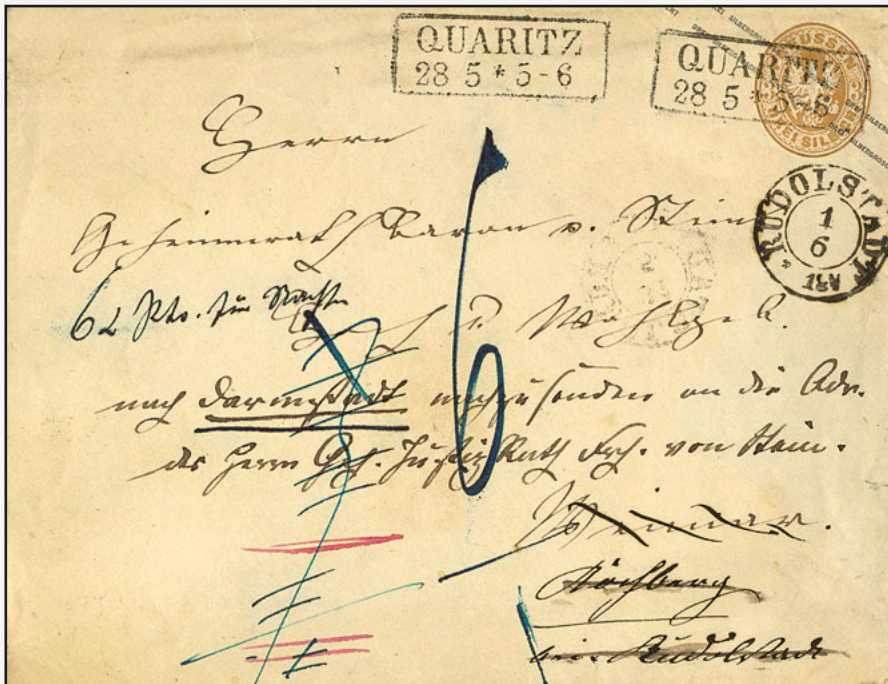 QUARITZ
28 5 * 5-6
QUARITZ
28 5 * 5-6
PREUSSEN
DREI SILBERGR
RUDOLSTADT
1
6
Herrn
Geheimrath Baron v. Stein
6
nach Darmstadt nachzusenden an die Adr.
des Herrn Geh. Justiz Rath Frh. von Stein.
Weimar.
Kochberg
bei Rudolstadt